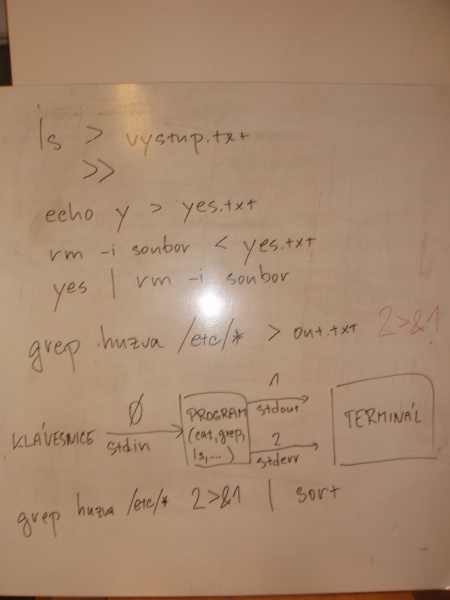 ls > vystup.txt
>>
echo y > yes.txt
rm -i soubor < yes.txt
yes | rm -i soubor
grep huzva /etc/* > out.txt 2>&1
KLÁVESNICE 0 stdin
PROGRAM
(cat, grep,
ls, ...)
1
stdout
2
stderr
TERMINÁL
grep huzva /etc/* 2>&1 | sort